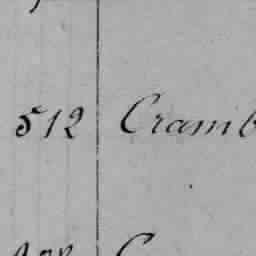 512 Cramb